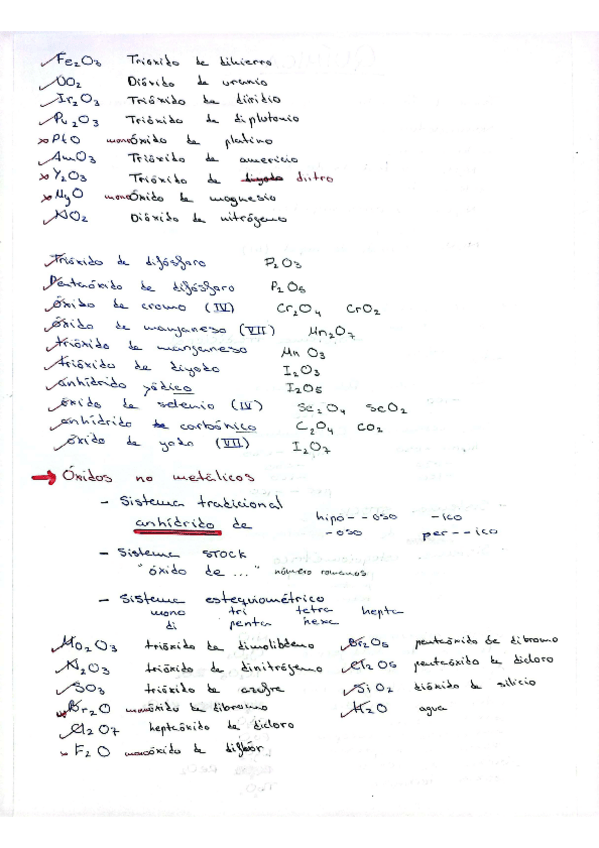 Fe₂O₃ Trióxido de dihierro
UO₂ Dióxido de uranio
Ir₂O₃ Trióxido de diiridio
Pu₂O₃ Trióxido de diplutonio
PtO monóxido de platino
AmO₃ Trióxido de americio
Y₂O₃ Trióxido de diitro
MgO monóxido de magnesio
NO₂ Dióxido de nitrógeno
Trióxido de difósforo P₂O₃
Pentaóxido de difósforo P₂O₅
óxido de cromo (IV) Cr₂O₄ CrO₂
óxido de manganeso (VII) Mn₂O₇
trióxido de manganeso MnO₃
trióxido de diyodo I₂O₃
anhídrido yódico I₂O₅
óxido de selenio (IV) Se₂O₄ SeO₂
anhídrido de carbónico C₂O₄ CO₂
óxido de yodo (VII) I₂O₇
→ Óxidos no metálicos
- Sistema tradicional
anhídrido de hipo--oso -ico
-oso per--ico
- Sistema STOCK
"óxido de ..." número romanos
- Sistema estequiométrico
mono tri tetra hepta
di penta hexa
Mo₂O₃ trióxido de dimolibdeno Br₂O₅ pentaóxido de dibromo
N₂O₃ trióxido de dinitrógeno Cl₂O₅ pentaóxido de dicloro
SO₃ trióxido de azufre SiO₂ dióxido de silicio
Br₂O monóxido de dibromo H₂O agua
Cl₂O₇ heptaóxido de dicloro
F₂O monóxido de diflúor